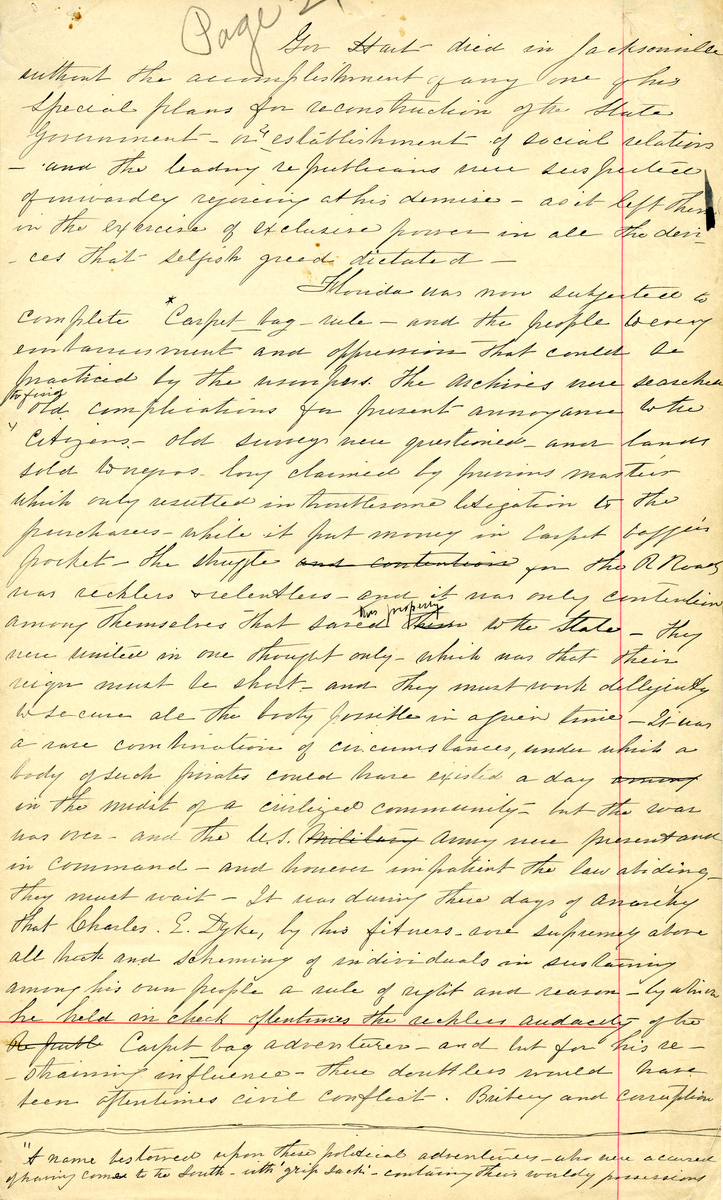 Page 2.
Gov Hart died in Jacksonville
without the accomplishment of any one of his
special plans for reconstruction of the State
Government - or establishment of social relations
- and the leading republicans were suspected
of inwardly rejoicing at his demise - as it left them
in the exercise of exclusive power in all the devi-
-ces that selfish greed dictated -
Florida was now subjected to
complete *Carpet-bag-rule - and the people to every
embarrassment and oppression that could be
practiced by the usurpers. The archives were searched
to find
old complications for present annoyance to the
citizens - old surveys were questioned - and lands
sold to negros - long claimed by previous masters
which only resulted in troublesome litigation to the
purchasers - while it put money in carpet bagger's
pocket - the struggle and contention for the R Roads
was reckless & relentless - and it was only contention
this property
among themselves that saved them to the State - They
were united in one thought only - which was that their
reign must be short - and they must work delligently
to secure all the booty possible in a given time - It was
a rare combination of circumstances, under which a
body of such pirates could have existed a day among
in the midst of a civilized community - but the war
was over - and the U.S. Military army were present and
in command - and however impatient the law abiding -
they must wait - It was during these days of anarchy
that Charles. E. Dyke, by his fitness - rose supremely above
all and scheming of individuals in sustaining
among his own people a rule of right and reason - by which
he held in check oftentimes the reckless audacity of the
Carpet bag adventurer - and but for his re-
-straining influence - there doubtless would have
been oftentimes civil conflict. Bribery and corruption
"A name bestowed upon these political adventurers - who were accused
of having come to the South - with 'grip sack' - containing their worldly possessions